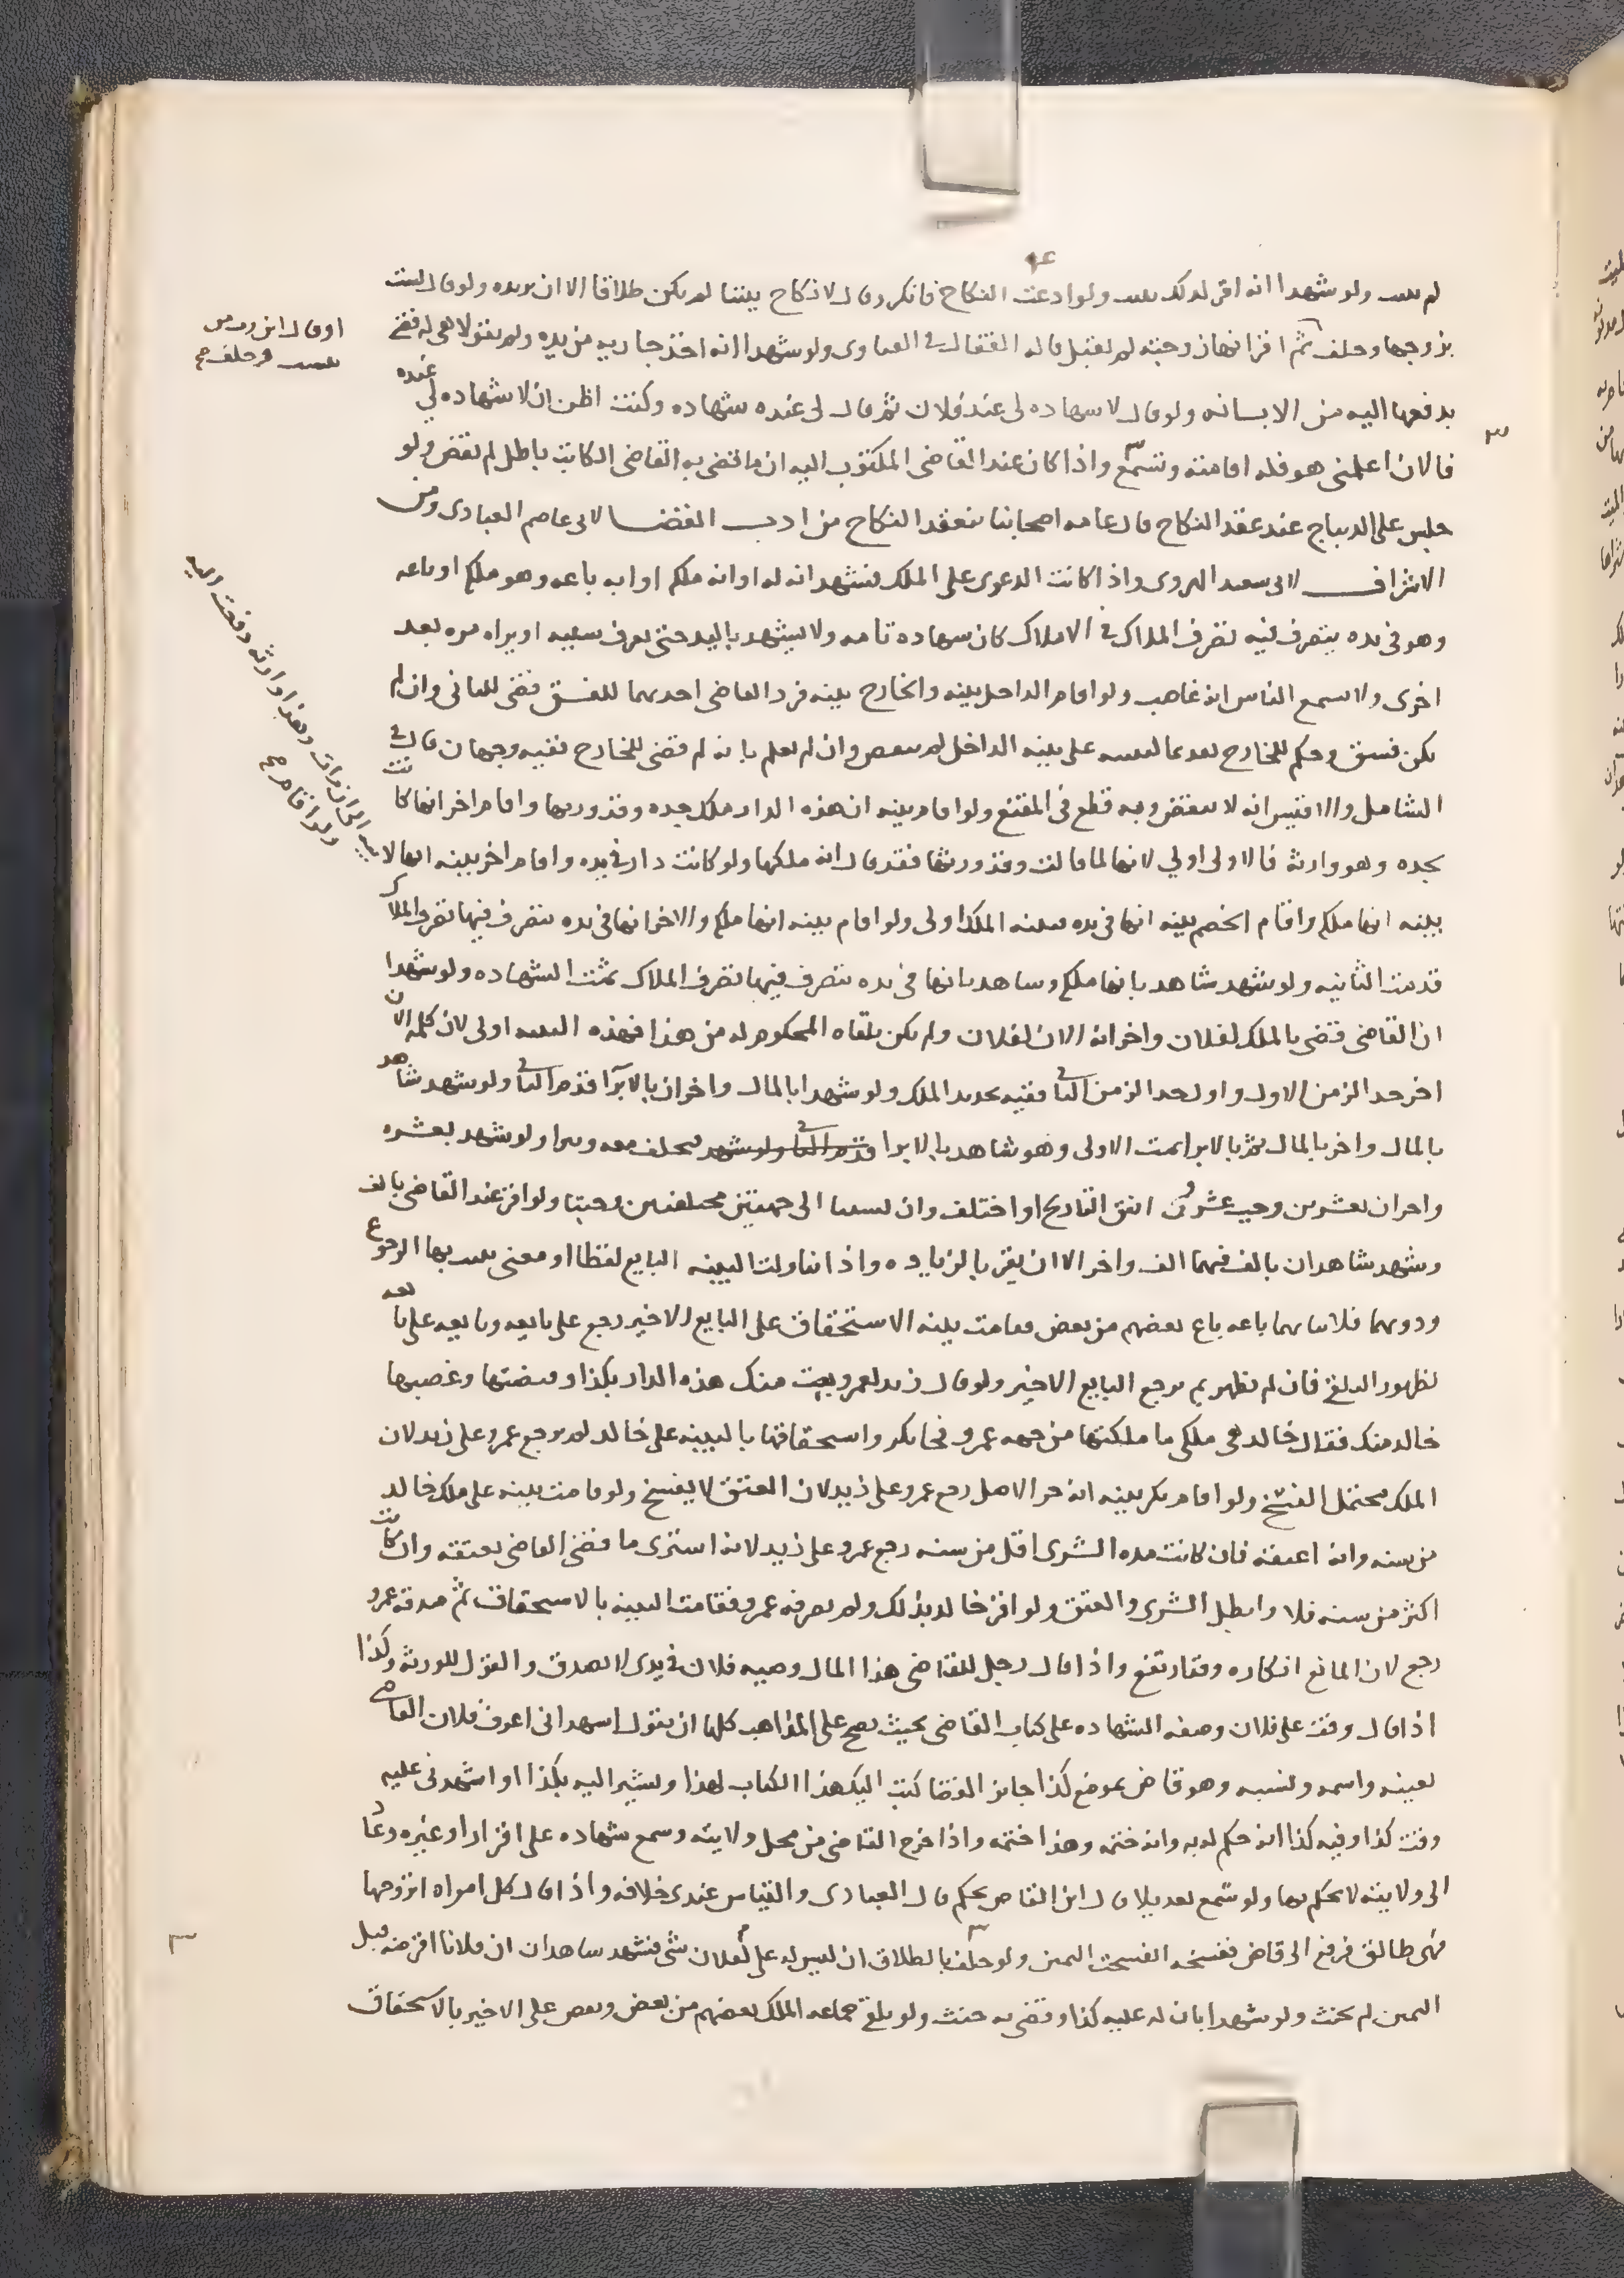 ولو شهدا انه اقر له لذلك ولو ادعت النكاح فانكر وقال لا نكاح بيننا لم يكن طلاقا الا ان يريده ولو قال لست
بزوجها وحلف ثم اقر انها زوجته لم تقبل قاله القفال في الفتاوى ولو شهدا انه اخذ جاريه من يده ولم يقولا هي له قضي
بدفعها اليه ولو قال لا شهاده لي عند فلان ثم قال لي عنده شهاده وكنت اظن ان لا شهاده لي عنده
فالان اعلمني هو فله اقامته وتسمع واذا كان عند القاضي المكتوب اليه ان ما قضى به القاضي الكاتب باطل لم نقض ولو
جلس على الديباج عند عقد النكاح قال عامه اصحابنا ينعقد النكاح من ادب القضا لابي عاصم العبادي ومن
الاشراف لابي سعد الهروي واذا كانت الدعوى على الملك فشهد انه له او انه ملكه او انه باعه وهو ملكه او باعه
وهو في يده يتصرف فيه تصرف الملاك في الاملاك كان شهاده تامه ولا يشهد باليد حتى يعرف سببه او يراه مره بعد
اخرى ولا سمع الناس انه غاصب ولو اقام الداخل بينه والخارج بينه فرد القاضي احديهما للفسق قضي للثاني وان لم
يكن فسق وحكم للخارج بعد على بينه الداخل لم وان لم يعلم بانه لم قضى للخارج ففيه وجهان قال في
الشامل والاقيس انه لا ينقض وبه قطع في المقنع ولو اقام بينه ان هذه الدار ملك جده وقد ورثها واقام اخر انها كانت
لجده وهو وارثه فالاولى اولي لانها لما قالت وقد ورثها فقد قال انه ملكها ولو كانت دار في يده واقام اخر بينه انها
بينه انها ملكه واقام الخصم بينه انها في يده فبينه الملك اولى ولو اقام بينه انها ملكه والاخر انها في يده يتصرف فيها تصرف الملاك
قدمت الثانيه ولو شهد شاهد بانها ملكه وشاهد بانها في يده يتصرف فيها تصرف الملاك تمت الشهاده ولو شهدا
ان القاضي قضى بالملك لفلان واخر انه الان لفلان ولم يكن تلقاه المحكوم له من هذا فهذه البينه اولى لان كلمه الان
اخر حد الزمن الاول واول حد الزمن الثاني ففيه تجديد الملك ولو شهدا بالمال واخران بالابرا قدم الثاني ولو شهد شاهد
بالمال واخر بالمال ثم بالابرا تمت الاولى وهو شاهد بالابرا فيحلف معه ويبرا ولو شهد بعشره
واخران بعشرين وجب عشرون اتفق التاريخ او اختلف وان نسبا الى جهتين مختلفتين وجبتا ولو اقر عند القاضي بالف
وشهد شاهدان بالف فهما الف واخر الا ان يقر بالزياده واذا تناولت البينه البايع لفظا او معنى بها الرجوع
ودونهما فلا باعه باع بعضهم من بعض فقامت بينه الاستحقاق على البايع الاخير رجع على بايعه وبايعه على بايعه
لظهور فان لم تظهر لم يرجع البايع الاخير ولو قال زيد لعمرو بعت منك هذه الدار بكذا وقبضتها وغصبها
خالد منك فقال خالد هي ملكي ما ملكتها من جهه عمرو فجا بكر واستحقاقها بالبينه على خالد لم يرجع عمرو على زيد لان
الملك محتمل الفسخ ولو اقام بكر بينه انه حر الاصل رجع عمرو على زيد لان العتق لا يفسخ ولو قامت بينه على ملك خالد
من سنه وانه اعتقه فان كانت مده الشرى اقل من سنه رجع عمرو على زيد لانه اشترى ما قضى القاضي بعتقه وان كانت
اكثر من سنه فلا وابطل الشرى والعتق ولو اقر خالد بذلك ولم يعرفه عمرو فقامت البينه بالاستحقاق ثم صدقه عمرو
رجع لان المانع انكاره وقد ارتفع واذا قال رجل للقاضي هذا المال وصيه فلان في يدي لا يصدق والقول للورثه وكذا
اذا قال وقف على فلان وصفه الشهاده على كتاب القاضي بحيث يصح على المذاهب كلها ان يقول اشهد اني اعرف فلان القاضي
بعينه واسمه ونسبه وهو قاض بموضع كذا جايز القضا كتب اليك هذا الكتاب لهذا ويشير اليه بكذا او اشهدني عليه
وقت كذا وفيه كذا انه حكم له به وانه ختمه وهذا ختمه واذا خرج القاضي من محل ولايته وسمع شهاده على اقرار او غيره وعاد
الى ولايته لا يحكم بها ولو سمع تعديلا قال ابن القاص يحكم قال العبادي والقياس عندي خلافه واذا قال كل امراه اتزوجها
فهي طالق فرفع الى قاض ففسخه انفسخت اليمين ولو حلف بالطلاق ان ليس له على لفلان شي فشهد شاهدان ان فلانا اقرضه قبل
اليمين لم يحنث ولو شهدا بان له عليه كذا وقضى به حنث ولو تلقى جماعه الملك بعضهم من بعض وبعض على الاخير بالاستحقاق
او قال
وحلف صح
وهذا وارثه دفعت اليه
ولو اقام صح